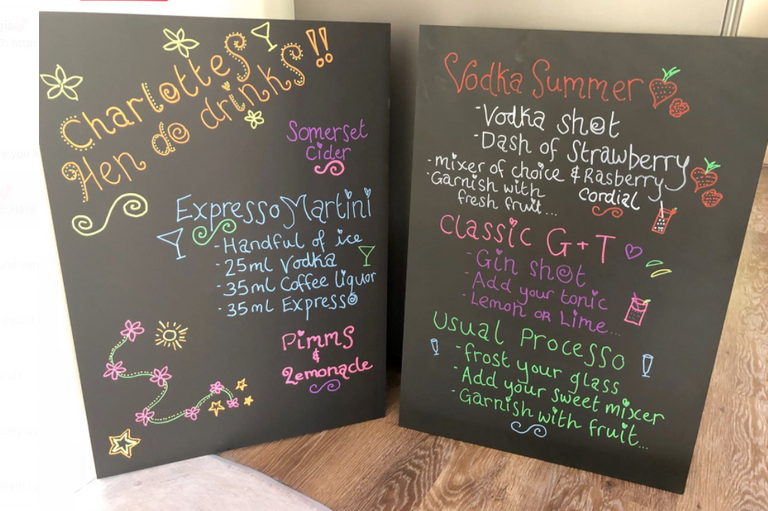 Charlottes
Hen do drinks!!
Somerset
Cider
Expresso Martini
- Handful of ice
- 25ml Vodka
- 35ml Coffee liquor
- 35ml Expresso
Pimms
&
Lemonade
Vodka Summer
- Vodka shot
- Dash of Strawberry
- mixer of choice & Rasberry
cordial
- Garnish with
fresh fruit...
Classic G+T
- Gin shot
- Add your tonic
- Lemon or Lime...
Usual Processo
- frost your glass
- Add your sweet mixer
- Garnish with fruit...